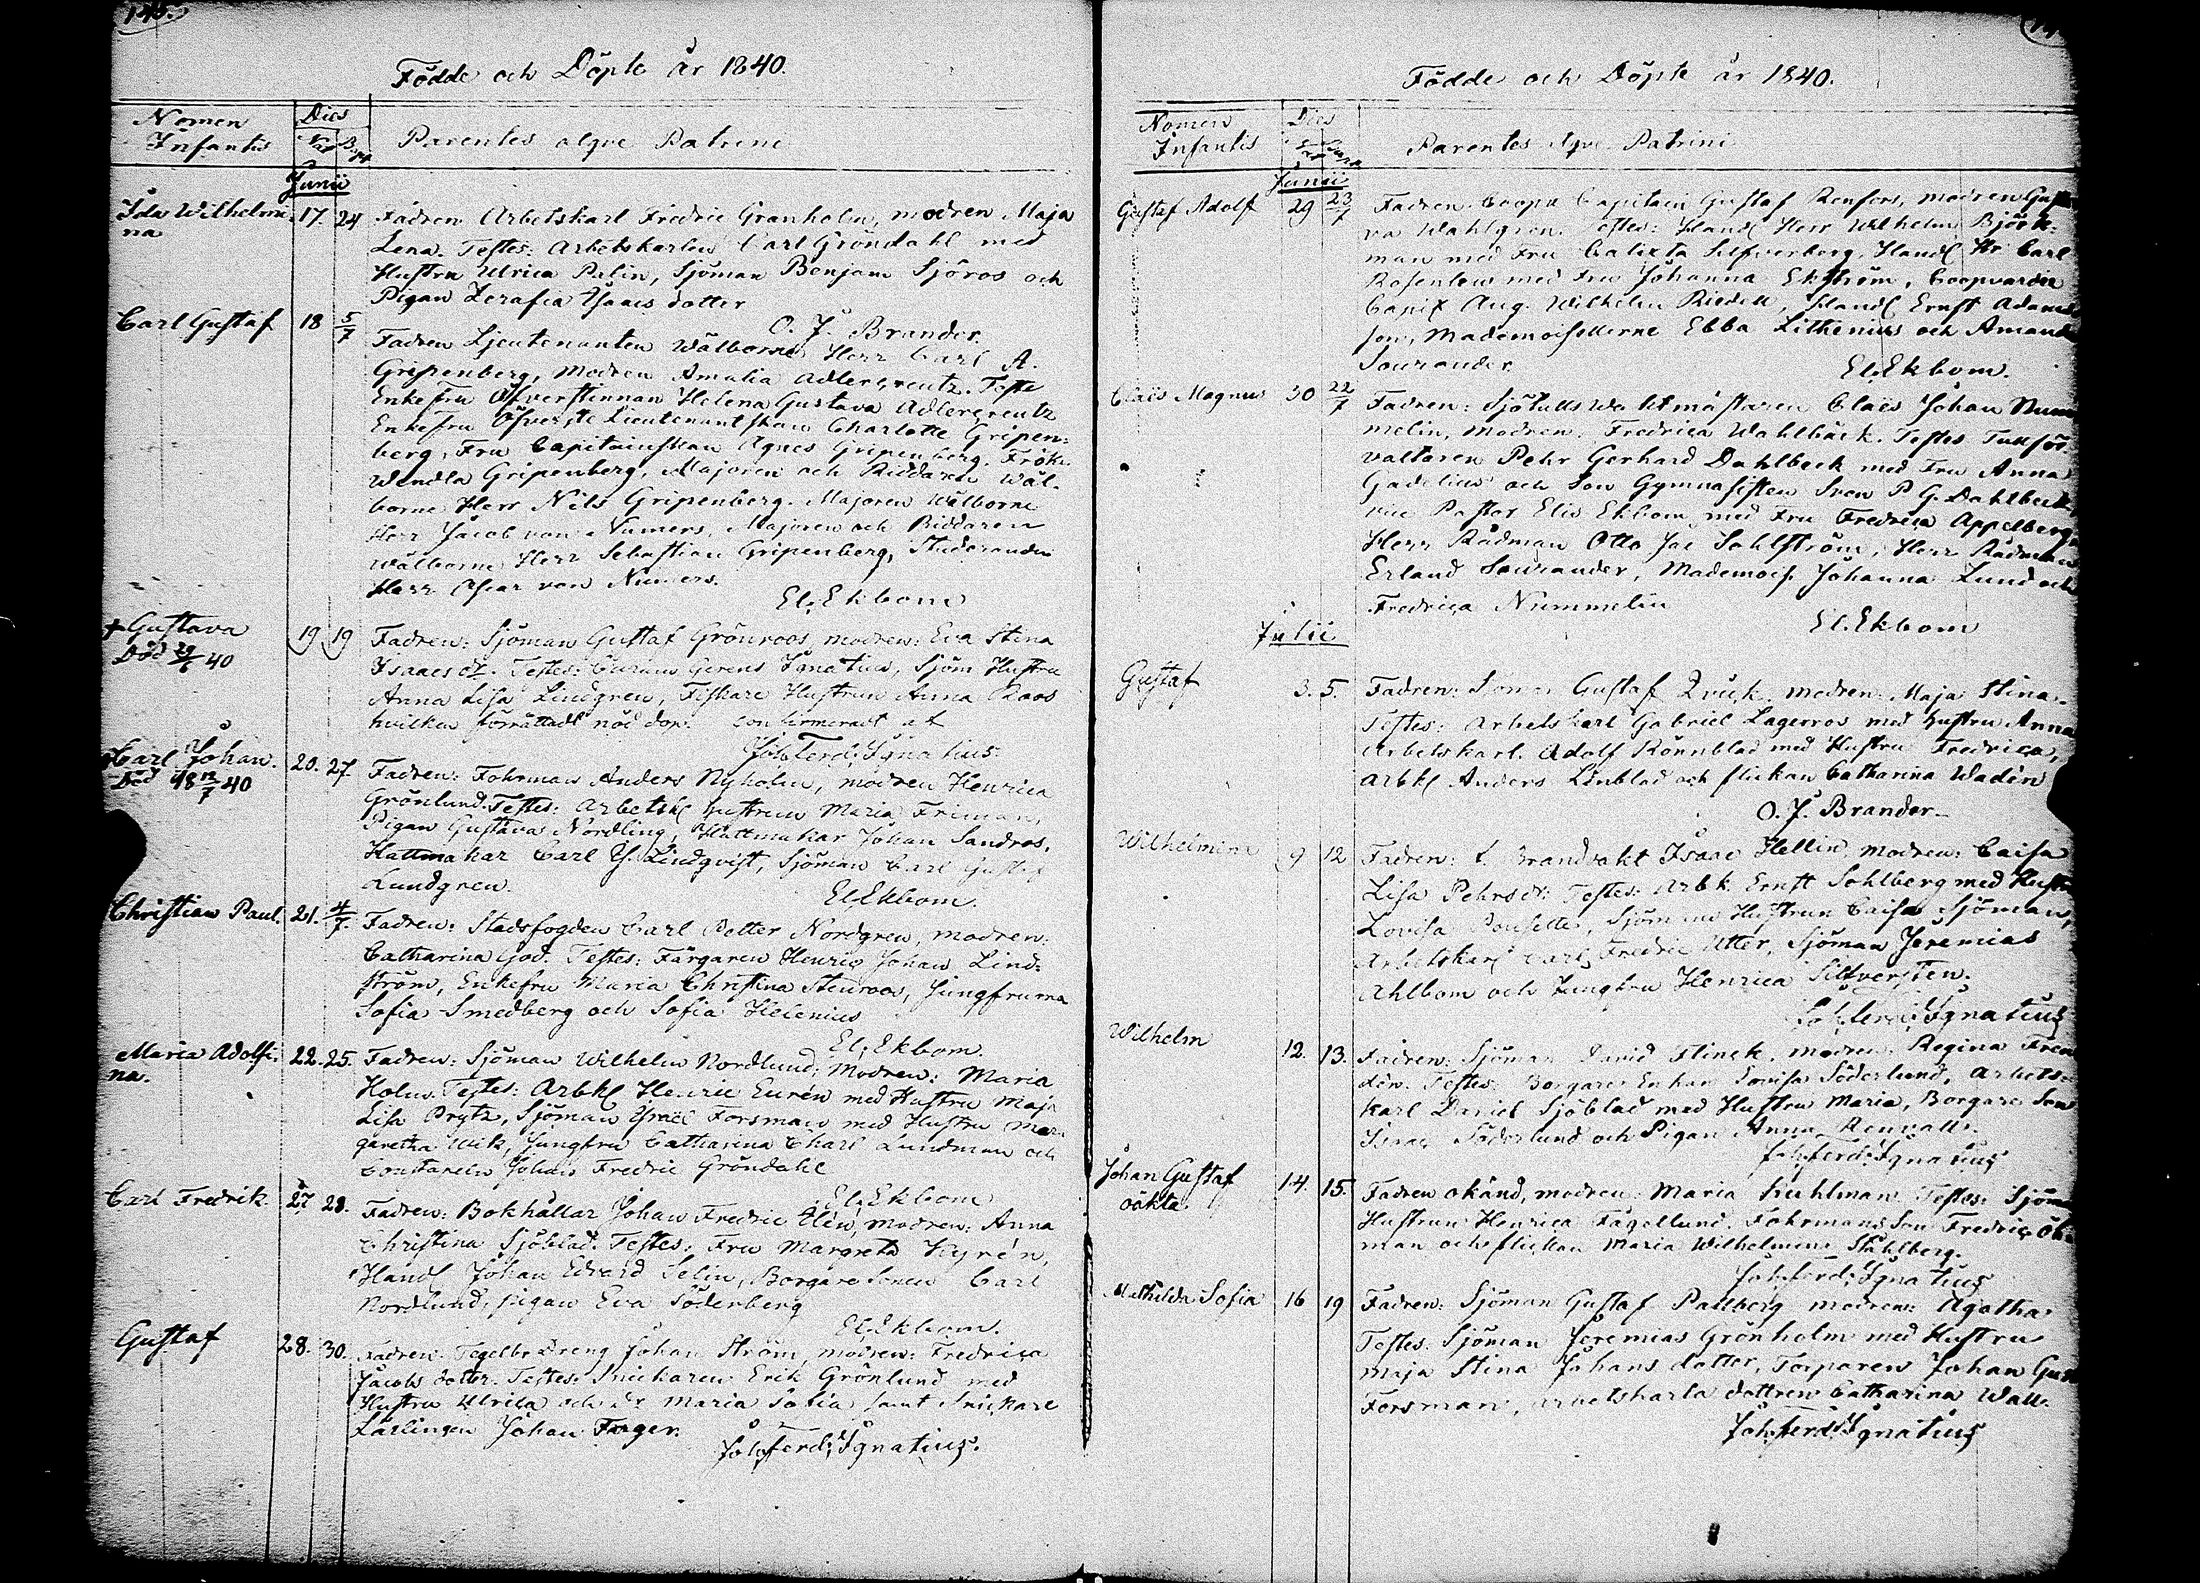 145.
Födde och Döpte år 1840.
Nomen Infantis
Dies
Nat Bapt
Parentes atque Patrini
Junii
Ida Wilhelmi-
na
17. 24
Fadren Arbetskarl Fredric Granholm, modren Maja
Lena. Testes: Arbetskarlen Carl Gröndahl med
Hustru Ulrica Palin, Sjöman Benjam Sjöros och
Pigan Serafia Isaacs dotter
O. J. Brander.
Carl Gustaf
18 5/7
Fadren Lieutenanten Wälborne Herr Carl A.
Gripenberg, Modren Amalia Adlercreutz. Teste
Enkefru Öfverstinnan Helena Gustava Adlercreutz
Enkefru Öfverste Lieutenantskan Charlotte Gripen-
berg, Fru Capitainskan Agnes Gripenberg. Frök.
Wendla Gripenberg, Majoren och Riddaren Wäl-
borne Herr Nils Gripenberg. Majoren Wälborne
Herr Jacob von Numers, Majoren och Riddaren
wälborne Herr Sebastian Gripenberg, Studeranden
Herr Oscar von Numers.
El. Ekbom
+ Gustava
Död 40
19 19
Fadren: Sjöman Gustaf Grönroos, modren: Eva Stina
Isaacs dr. Testes: Ignatius, Sjöm Hustru
Anna Lisa Lindgren, Fiskare Hustrun Anna Roos
hvilken förrättadt nöd dop. confirmeradt af
Joh. Ferd. Ignatius
Carl Johan.
Död 40
20. 27.
Fadren: Fohrman Anders Nyholm, modren Henrica
Grönlund. Testes: Arbetsk Hustrun Maria Friman,
Pigan Gustava Nordling, Hattmakar Johan Sandros,
Hattmakar Carl G. Lindqvist, Sjöman Carl Gustaf
Lundgren.
El. Ekbom.
Christian Paul.
21. 4/7.
Fadren: Stadsfogden Carl Petter Nordgren, modren:
Catharina God. Testes: Färgaren Henric Johan Lind-
ström, Enkefru Maria Christina Stenroos, Jungfrurna
Sofia Smedberg och Sofia Helenius
El. Ekbom.
Maria Adolfi-
na.
22. 25.
Fadren: Sjöman Wilhelm Nordlund, Modren: Maria
Holm. Testes: Arbk Henric Eurén med Hustru Maja
Lisa Prytz, Sjöman Israel Forsman med Hustru Mar-
garetha Wik, Jungfru Catharina Charl Lundman och
Constareln Johan Fredric Gröndahl
El. Ekbom
Carl Fredrik
27 28.
Fadren: Bokhållar Johan Fredric Elén, modren: Anna
Christina Sjöblad. Testes: Fru Margreta Hyrén,
Handl Johan Edvard Selin, Borgare Sonen Carl
Nordlund, pigan Eva Söderberg
El. Ekbom.
Gustaf
28. 30.
Fadren: Tegelbr Dreng Johan Ström, modren: Fredrica
Jacobs dotter. Testes: Snickaren Erik Grönlund med
Hustru Ulrica och dr Maria Sofia samt Snickare
Lärlingen Johan Farger.
Joh. Ferd. Ignatius.
Födde och Döpte år 1840.
Nomen Infantis
Dies
Parentes atque Patrini
Junii
Gustaf Adolf
29 23/7
Fadren Coopv Capitain Gustaf Renfors, modren Gusta
va Wahlgren. Testes: Handl Herr Wilhelm Björk-
man med Fru Calixta Silfverberg, Handl Hr Carl
Rosenlew med Fru Johanna Ekström, Coopvardie
Capit Aug. Wilhelm Riedell, Handl Ernst Adam
son, Mademoisellerne Ebba Lithenius och Amanda
Sourander.
El. Ekbom.
Claës Magnus
30 22/7
Fadren: Sjötulls Waktmästaren Claës Johan Num
melin, modren. Fredrica Wahlbäck. Testes Tullför-
valtaren Pehr Gerhard Dahlbeck med Fru Anna
Gadelius och Son Gymnasisten Sven P G. Dahlbeck
vice Pastor Elis Ekbom med Fru Fredrica Appelberg
Herr Rådman Otto Jac Sohlström, Herr Rådman
Erland Sourander, Mademois. Johanna Lund och
Fredrica Nummelin
El. Ekbom
Julii
Gustaf
3. 5.
Fadren: Sjöman Gustaf Qvick, modren: Maja Stina.
Testes: Arbetskarl Gabriel Lagerros med hustru Anna
Arbetskarl. Adolf Rönnblad med Hustru Fredrica,
Arbk Anders Linblad och flickan Catharina Wadén
O. J. Brander
Wilhelmina
9 12
Fadren: f. Brandvakt Isaac Hellin, modren: Caisa
Lisa Pehrs dr. Testes: Arbk. Ernst Sohlberg med Hustru
Lovisa Ponsette, Sjöman Hustrun Caisa Sjöman,
Arbetskarl Carl Fredric Utter, Sjöman Jeremias
Ahlbom och Jungfru Henrica Silfversten.
Joh. Ferd. Ignatius
Wilhelm
12. 13.
Fadren: Sjöman David Flinck, modren Regina Fren
dén. Testes: Borgare Enkan Lovisa Söderlund, Arbets-
karl Daniel Sjöblad med Hustru Maria, Borgare Son
Isaac Söderlund och Pigan Anna Renvall.
Joh. Ferd. Ignatius
Johan Gustaf
oäkta.
14. 15.
Fadren okänd, modren: Maria Kuhlman. Testes: Sjöm
Hustrun Henrica Fagellund. Fohrmans Son Fredric Öh
man och flickan Maria Wilhelmina Ståhlberg.
Joh. Ferd. Ignatius
Mathilda Sofia
16 19
Fadren: Sjöman Gustaf Pallberg modren: Agatha
Testes. Sjöman Jeremias Grönholm med Hustru
Maja Stina Johans dotter, Torparen Johan Gus
Forsman, Arbetskarls dottren Catharina Wall.
Joh. Ferd. Ignatius